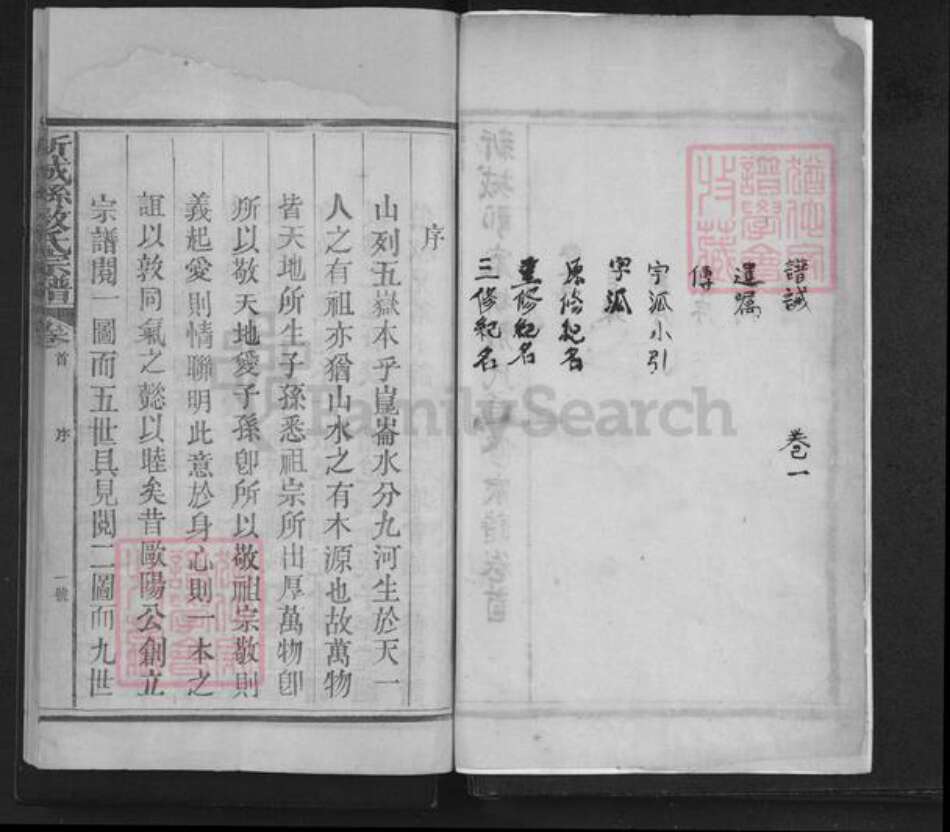 譜誡 卷一
遺囑
傳
字派小引
字派
原修紀名
重修紀名
三修紀名
序
山列五嶽本乎崑崙水分九河生於天一
人之有祖亦猶山水之有木源也故萬物
皆天地所生子孫悉祖宗所出厚萬物卽
所以敬天地愛子孫卽所以敬祖宗敬則
義起愛則情聯明此意於身心則一本之
誼以敦同氣之懿以睦矣昔歐陽公創立
宗譜閱一圖而五世具見閱二圖而九世
氏宗譜
卷首 序 一號
FamilySearch